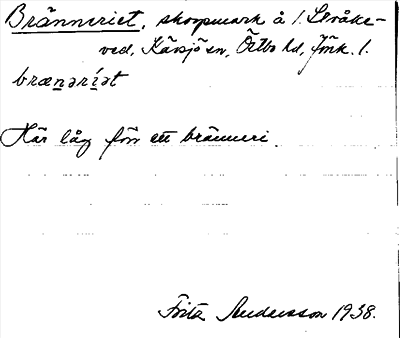 Bränneriet, skogsmark å 1. Stråke-
ved, Kärsjö sn, Östbo hd, Jönk. l.
brænəríət
Här låg förr ett bränneri.
Fritz Andersson 1938.